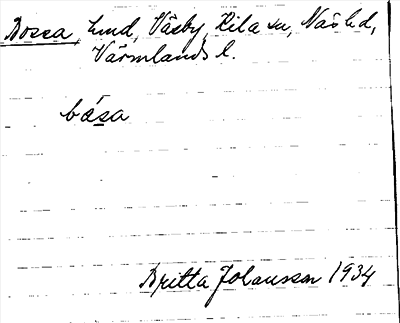 Bossa, lund, Väsby, Kila sn, Näs hd,
Värmlands l.
båsa
Britta Johansson 1934